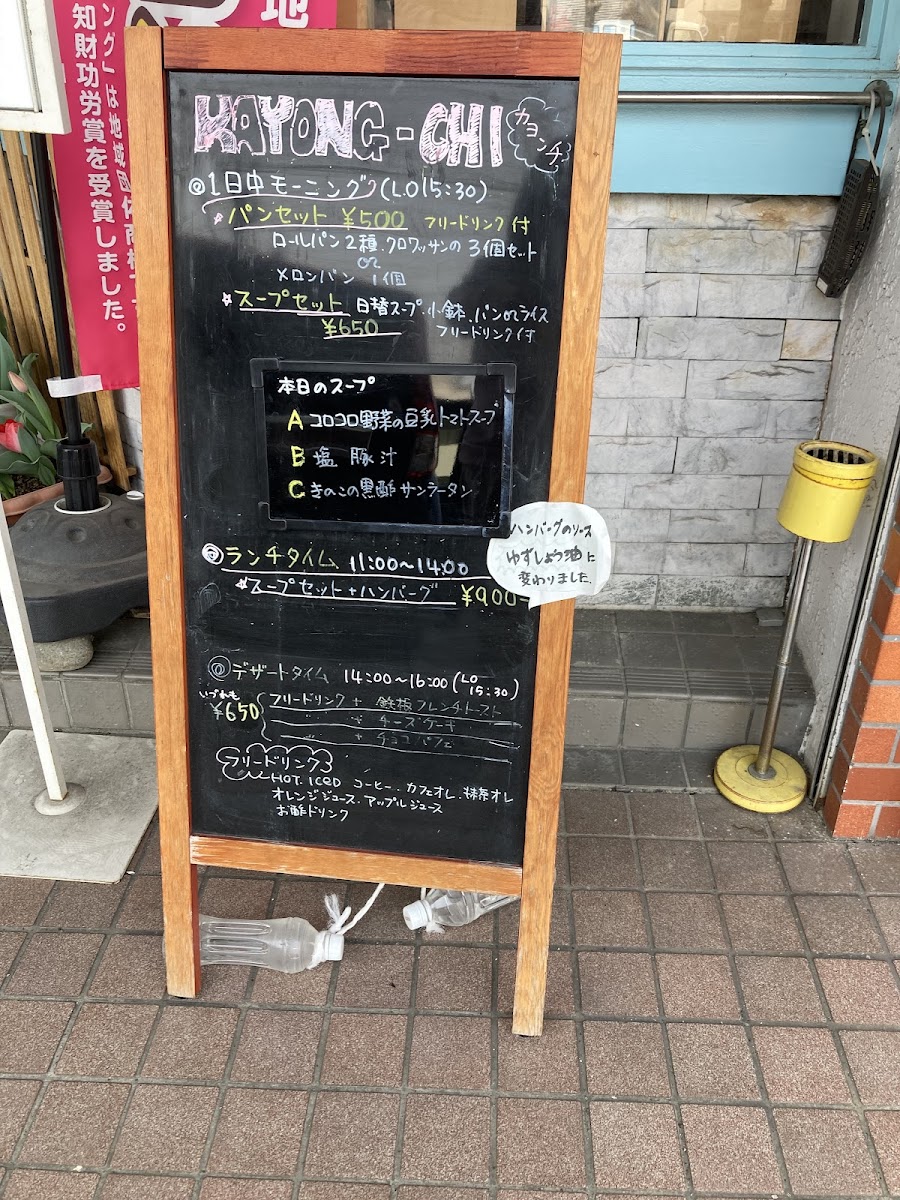 地
ング」は地域団体商標で
知財功労賞を受賞しました。
KAYONG-CHI
カヨンチ
◎1日中モーニング♪(L.O 15:30)
☆パンセット ¥500 フリードリンク付
ロールパン2種.クロワッサンの3個セット
or
メロンパン 1個
☆スープセット 日替スープ.小鉢.パンorライス
¥650 フリードリンク付
本日のスープ
A コロコロ野菜の豆乳トマトスープ
B 塩豚汁
C きのこの黒酢サンラータン
ハンバーグのソース
ゆずしょう油に
変わりました.
◎ランチタイム 11:00〜14:00
☆スープセット+ハンバーグ ¥900-
◎デザートタイム 14:00〜16:00(LO 15:30)
いづれも
¥650
フリードリンク + 鉄板フレンチトースト
+ チーズケーキ
+ チョコパフェ
フリードリンク
HOT. ICED コーヒー.カフェオレ.抹茶オレ
オレンジジュース.アップルジュース
お酢ドリンク